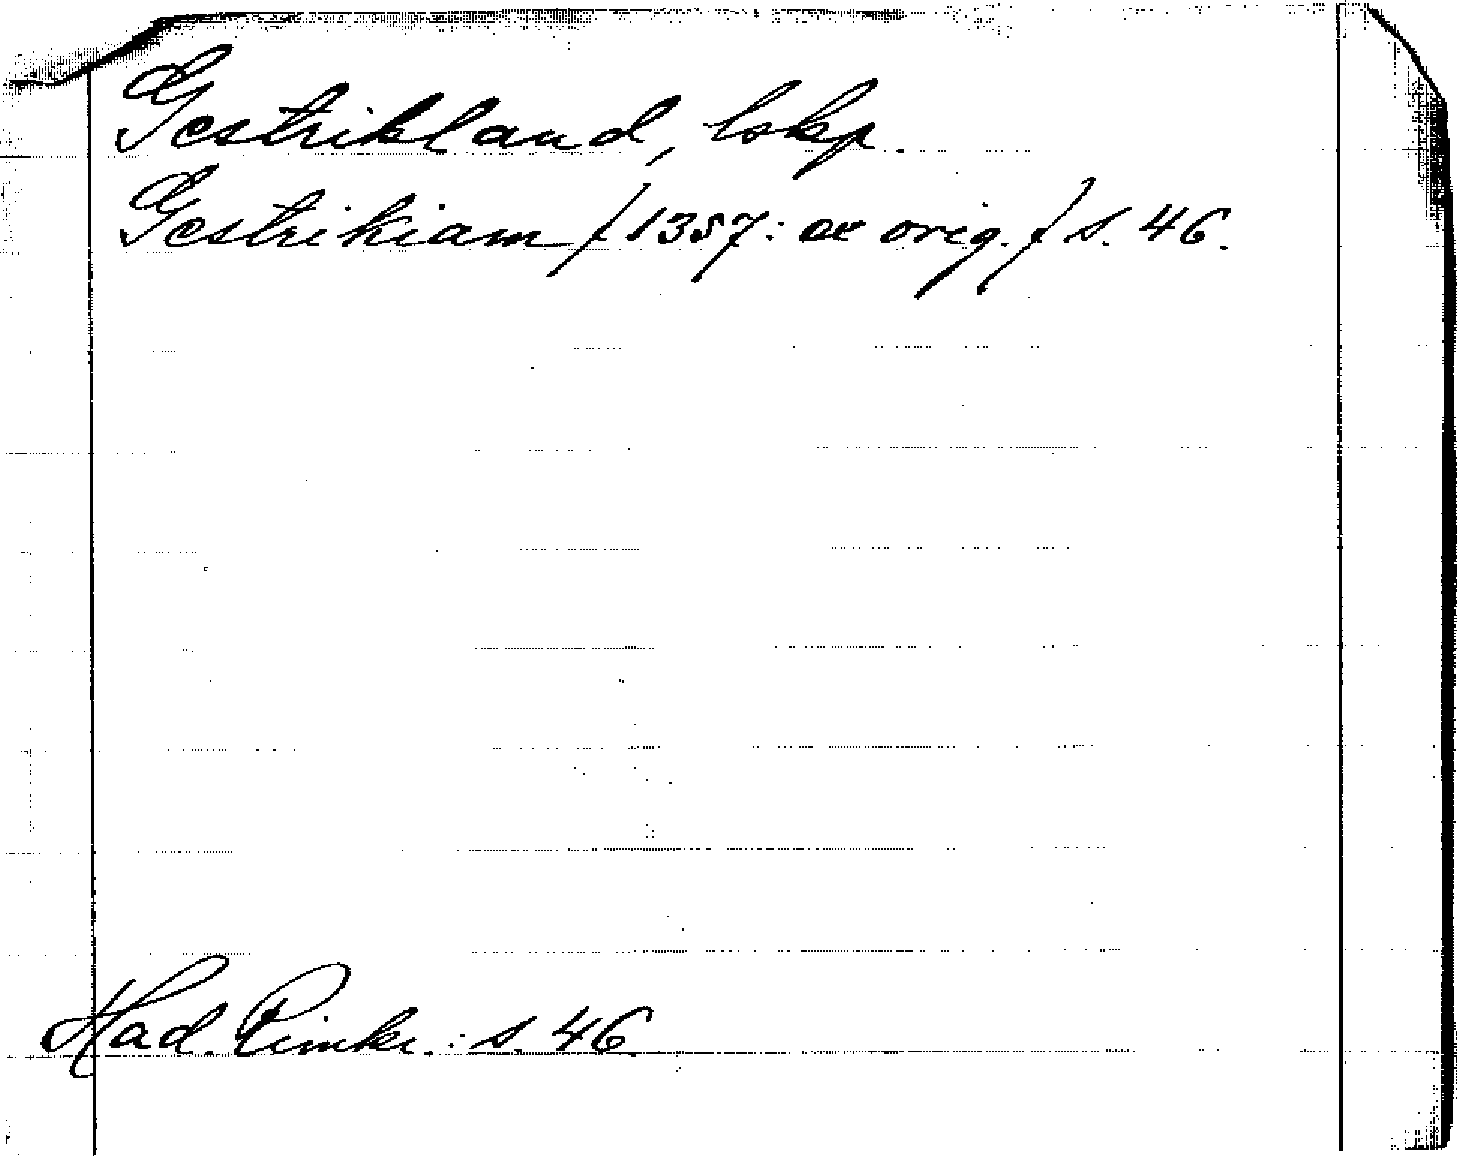 Gestrikland, lskp.
Gestrikiam /1357: ex orig./ s. 46.
Had. Rimkr.: s. 46